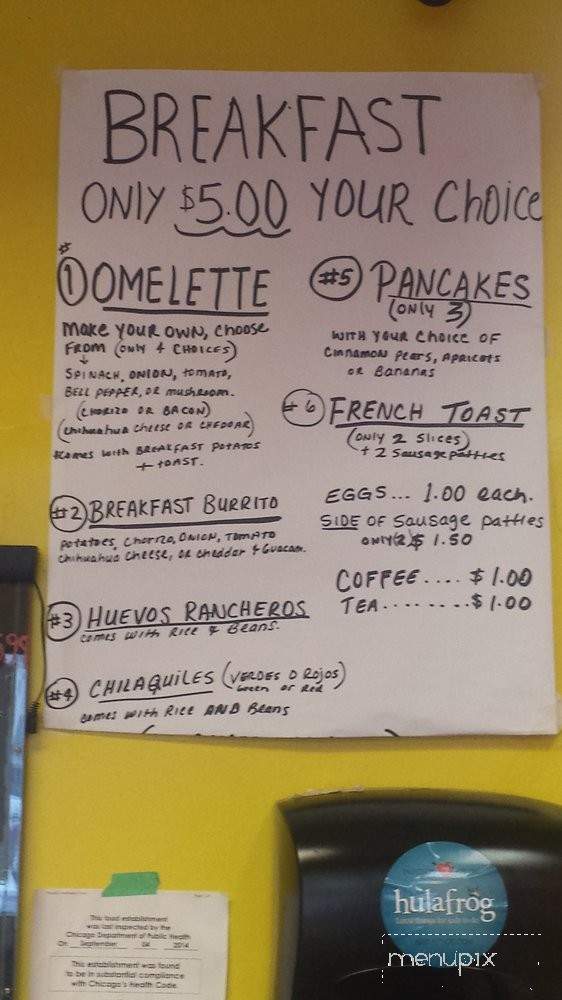 BREAKFAST
ONLY $5.00 YOUR Choice
#1 OMELETTE
Make YOUR OWN, Choose
FROM (ONLY 4 CHOICES)
↓
SPINACH, ONION, TOMATO,
BELL PEPPER, OR mushroom.
(CHORIZO OR BACON)
(Chihuahua Cheese OR CHEDDAR)
*Comes with BREAKFAST POTATOS
+ TOAST.
#2 BREAKFAST BURRITO
potatoes, Chorizo, ONION, TOMATO
Chihuahua Cheese, OR Cheddar & Guacam.
#3 HUEVOS RANCHEROS
comes with Rice & Beans.
#4 CHILAQUILES (VERDES O ROJOS)
Green or Red
comes with Rice AND Beans
#5 PANCAKES
(ONLY 3)
WITH YOUR CHOICE OF
Cinnamon Pears, APRICOTS
OR BANANAS
#6 FRENCH TOAST
(ONLY 2 SLICES)
+ 2 Sausage patties
EGGS... 1.00 each.
SIDE OF Sausage patties
ONLY(2) $ 1.50
COFFEE.... $ 1.00
TEA........ $ 1.00
This food establishment
was last inspected by the
Chicago Department of Public Health
On September 04 2014
This establishment was found
to be in substantial compliance
with Chicago's Health Code.
hulafrog
menupix